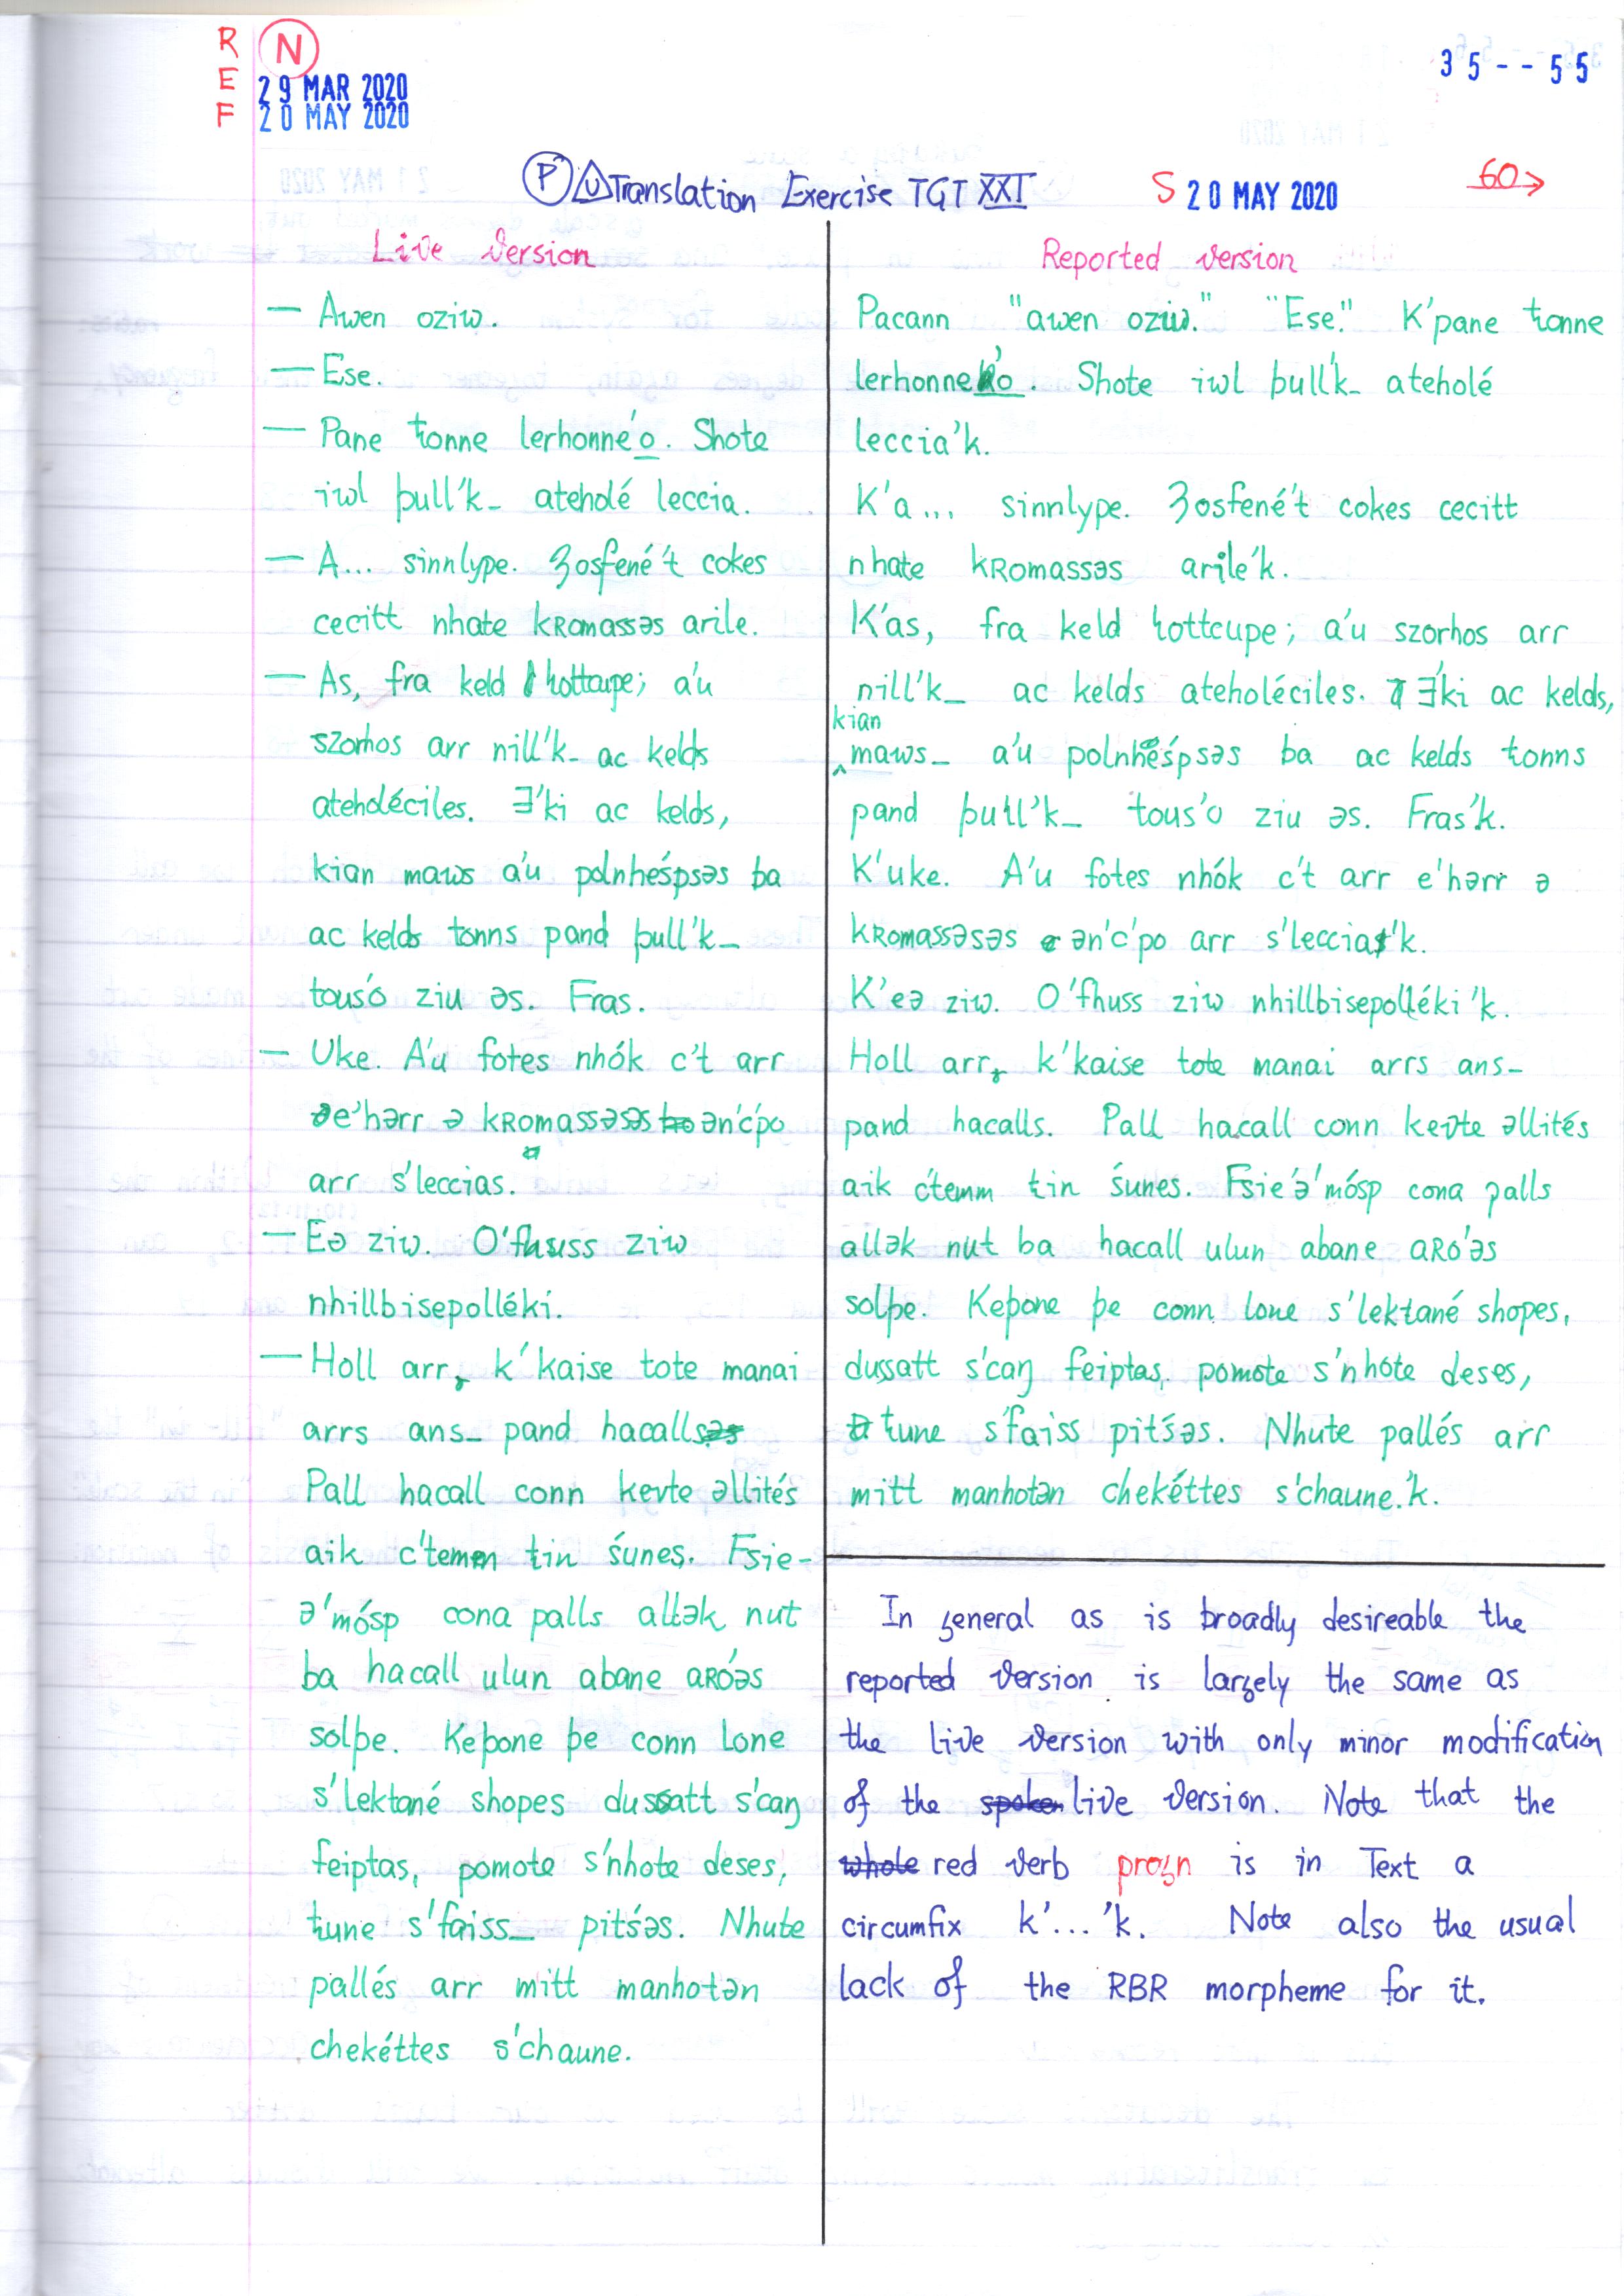 R E F
N
29 MAR 2020
20 MAY 2020
35--55
P U Translation Exercise TGT XXI
S 20 MAY 2020
60→
Live version
— Awen oziw.
— Ese.
— Pane tonne lerhonne'o. Shote
iwl þull'k_ ateholé leccia.
— A... sinnlype. Ȝosfené't cokes
cecitt nhate kRomassəs arile.
— As, fra keld hottcupe; a'u
szorhos arr nill'k_ ac kelds
ateholéciles. Ǝ'ki ac kelds,
kian maws a'u polnheśpsəs ba
ac kelds tonns pand þull'k_
tous'o ziu əs. Fras.
— Uke. A'u fotes nhók c't arr
e'hərr ə kRomassəsəs ən'c'po
arr s'leccias.
— Eə ziw. O'fhuss ziw
nhillbisepolléki.
— Holl arr, k'kaise tote manai
arrs ans_ pand hacalls
Pall hacall conn kevte əllités
aik c'temm tin śunes. Fsie-
ə'mósp cona palls allək nut
ba hacall ulun abane aRó'əs
solþe. Keþone þe conn lone
s'lektané shopes dussatt s'caŋ
feiptas, pomote s'nhote deses,
tune s'faiss_ pitśəs. Nhute
pallés arr mitt manhotən
chekéttes s'chaune.
Reported version
Pacann "awen oziw." "Ese." K'pane tonne
lerhonne'o. Shote iwl þull'k_ ateholé
leccia'k.
K'a... sinnlype. Ȝosfené't cokes cecitt
nhate kRomassəs arile'k.
K'as, fra keld hottcupe; a'u szorhos arr
nill'k_ ac kelds ateholéciles. Ǝ'ki ac kelds,
kian
maws_ a'u polnheśpsəs ba ac kelds tonns
pand þull'k_ tous'o ziu əs. Fras'k.
K'uke. A'u fotes nhók c't arr e'hərr ə
kRomassəsəs ən'c'po arr s'leccias'k.
K'eə ziw. O'fhuss ziw nhillbisepolléki'k.
Holl arr, k'kaise tote manai arrs ans_
pand hacalls. Pall hacall conn kevte əllités
aik c'temm tin śunes. Fsie'ə'mósp cona palls
allək nut ba hacall ulun abane aRó'əs
solþe. Keþone þe conn lone s'lektané shopes,
dussatt s'caŋ feiptas, pomote s'nhote deses,
tune s'faiss pitśəs. Nhute pallés arr
mitt manhotən chekéttes s'chaune.'k.
In general as is broadly desireable the
reported version is largely the same as
the live version with only minor modification
of the spoken live version. Note that the
whole red verb progn is in Text a
circumfix k'...'k. Note also the usual
lack of the RBR morpheme for it.